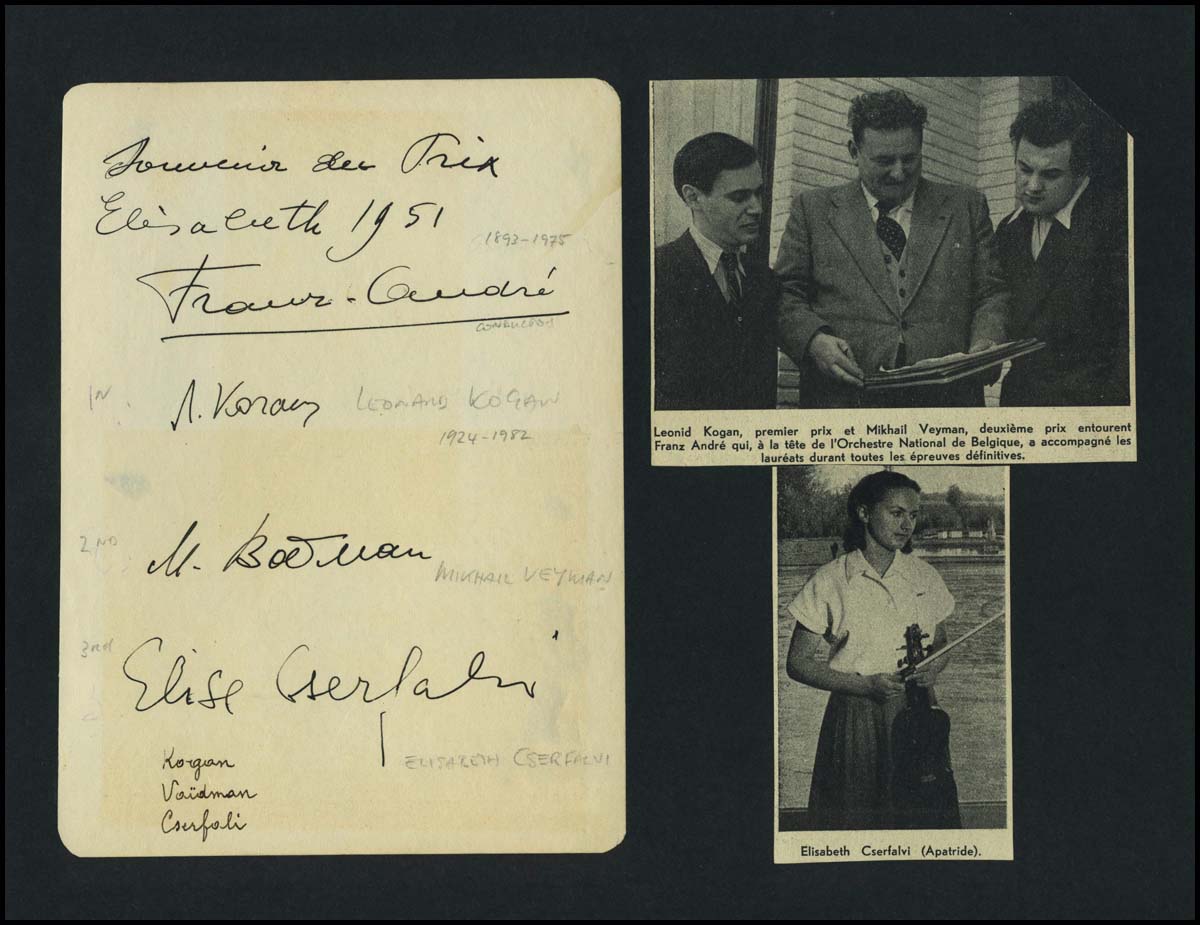 Souvenir du Prix
Elisabeth 1951
1893-1975
Franz-André
CONDUCTOR
Л. Коган LEONARD KOGAN
1924-1982
2ND
М. Вайман
MIKHAIL VEYMAN
3rd
Elise Cserfalvi
ELISABETH CSERFALVI
Korgan
Vaïdman
Cserfali
Leonid Kogan, premier prix et Mikhaïl Veyman, deuxième prix entourent
Franz André qui, à la tête de l'Orchestre National de Belgique, a accompagné les
lauréats durant toutes les épreuves définitives.
Elisabeth Cserfalvi (Apatride).